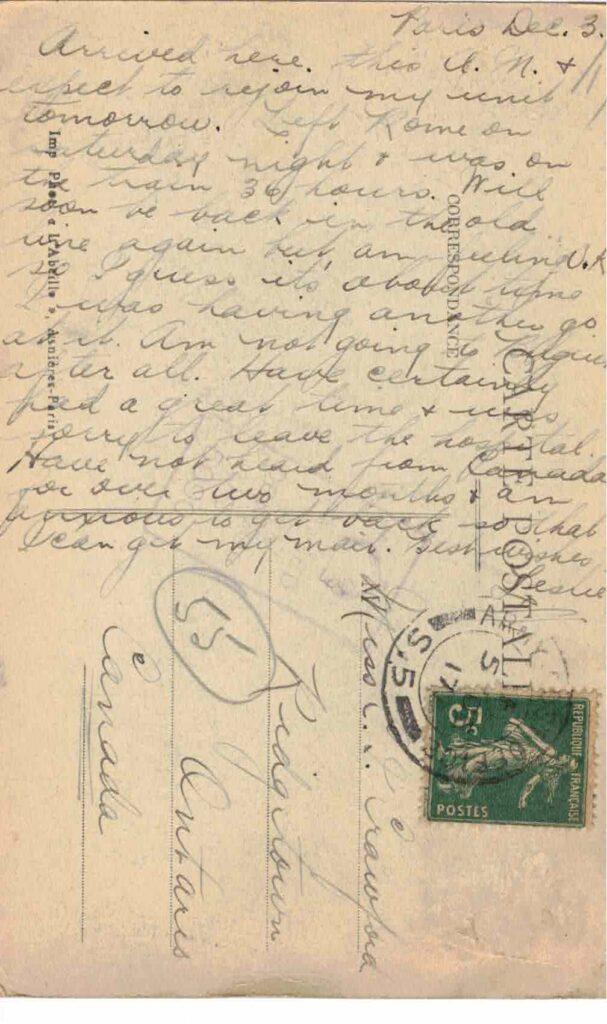 Paris Dec. 3.
Arrived here this A.M. &
expect to rejoin my unit
tomorrow. Left Rome on
Saturday night & was on
the train 36 hours. Will
soon be back in the old
line again but am feeling O.K.
so I guess it's about time
I was having another go
at it. Am not going to
after all. Have certainly
had a great time & was
sorry to leave the hospital.
Have not heard from Canada
for over two months & am
anxious to get back so that
I can get my mail. Best wishes
Leslie
CORRESPONDANCE
CARTE POSTALE
Asnières-Paris
Miss Crawford
Ridgetown
Ontario
Canada
55
S.5
5
17
RÉPUBLIQUE FRANÇAISE
5c
POSTES